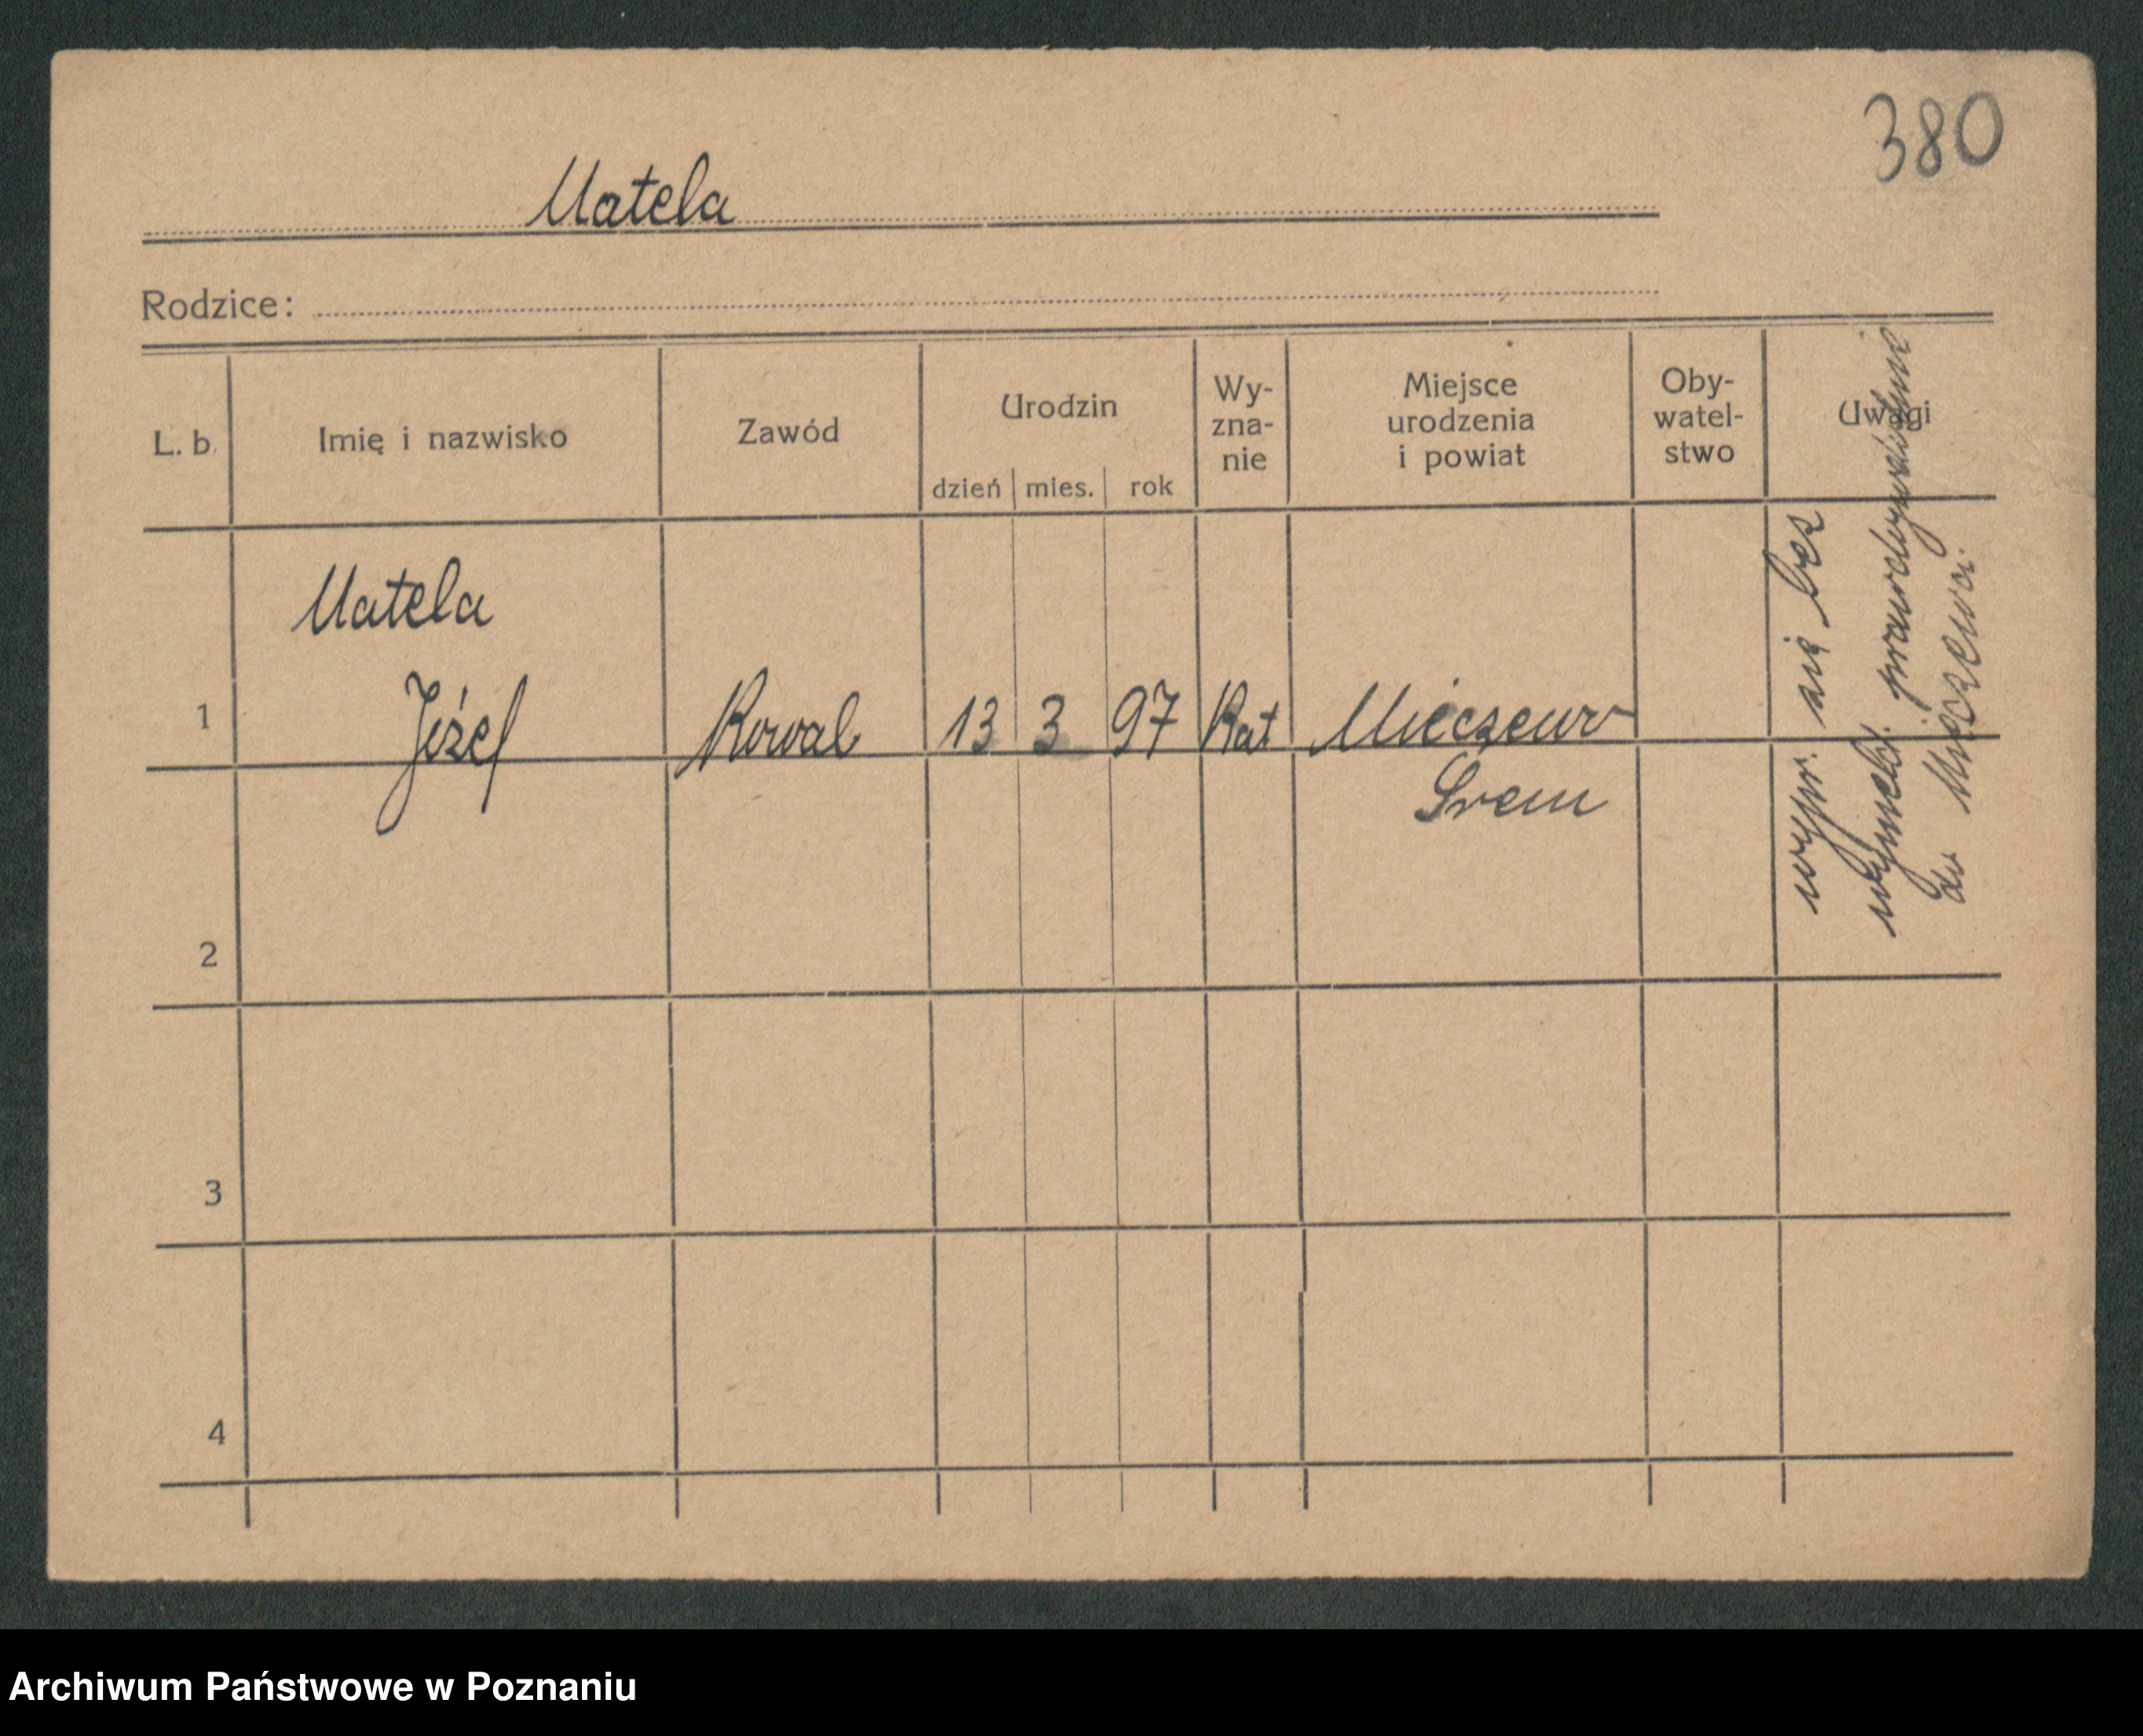 380
Matela
Rodzice:
L. b.
Imię i nazwisko
Zawód
Urodzin
dzień mies. rok
Wy-
zna-
nie
Miejsce
urodzenia
i powiat
Oby-
watel-
stwo
Uwagi
Matela
1 Józef Kowal 13 3 97 Kat Mieczewo
Śrem
wypr. się bez
wymeld. prawdopodobnie
do Mieczewa.
2
3
4
Archiwum Państwowe w Poznaniu